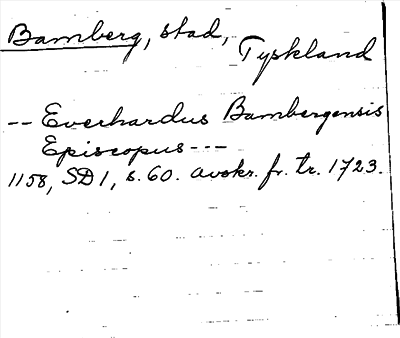 Bamberg, stad,
Tyskland
-- Everhardus Bambergensis
Episcopus ---
1158, SD 1, s. 60. avskr. fr. tr. 1723.